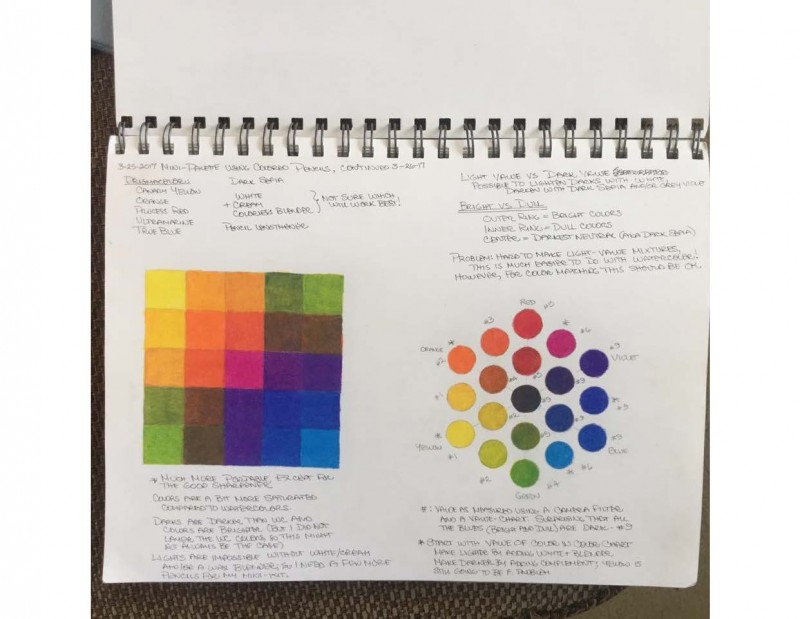 3-25-2017 Mini-Palette Using Colored Pencils, continued 3-26-17
Dark Sepia
Canary Yellow
Orange
Process Red
Ultramarine
True Blue
White
+ Cream
Colorless Blender
Not sure which
will work best!
Pencil Lengthener
Light Value vs Dark Value
Possible to lighten darks with white
Darken with dark sepia and/or grey violet
Bright vs Dull
Outer ring = bright colors
Inner ring = dull colors
Center = darkest neutral (aka dark sepia)
Problem: hard to make light-value mixtures,
this is much easier to do with watercolor!
However, for color matching this should be ok.
Red #5
#3
*
#6
Orange *
#2
#9
Violet
#1
#9
*
Yellow
#1
#9
Blue
#2
#6
Green
#4
* Much more portable except for
the good sharpener
Colors are a bit more saturated
compared to watercolors.
Darks are darker than WC and
colors are brighter (but I did not
WC colors so this might
not always be the case)
Lights are impossible without white/cream
and/or a wax blender, so I need a few more
pencils for my mini-kit.
#: Value as measured using a camera filter
and a value chart. Surprising that all
the blues (bright and dull) are dark - #9
* Start with value of color in color chart
Make lighter by adding white + blender
Make darker by adding complement; yellow is
still going to be a problem